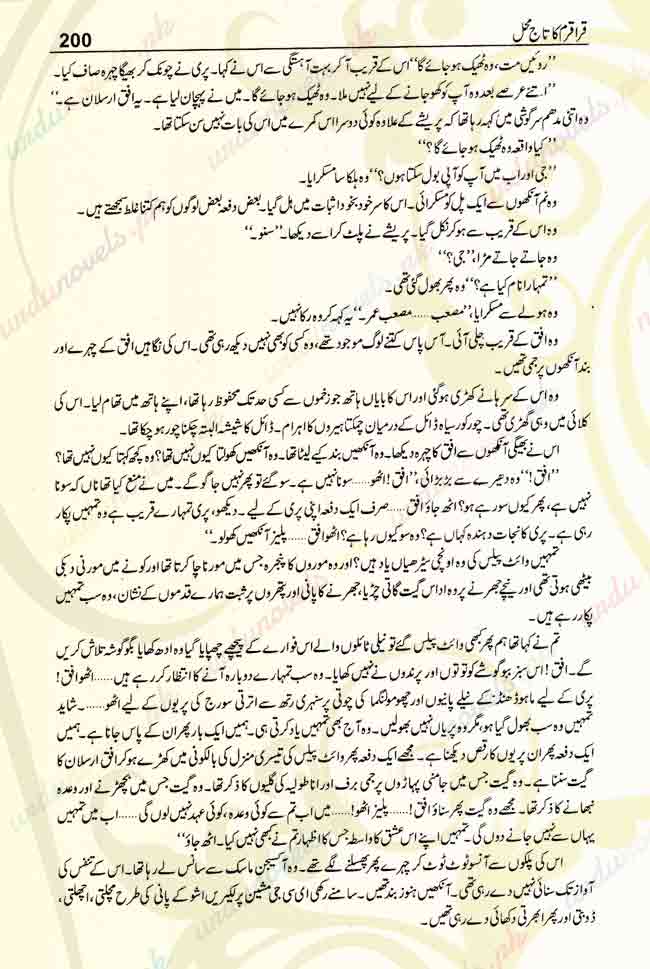 قراقرم کا تاج محل
200
”روئیں مت، وہ ٹھیک ہو جائے گا“ اس کے قریب آ کر بہت آہستگی سے اس نے کہا۔ پری نے چونک کر بھیگا چہرہ صاف کیا۔
”اتنے عرصے بعد وہ آپ کو کھو جانے کے لیے نہیں ملا۔ وہ ٹھیک ہو جائے گا۔ میں نے پہچان لیا ہے۔ یہ افق ارسلان ہے۔“
وہ اتنی مدھم سرگوشی میں کہہ رہا تھا کہ پریشے کے علاوہ کوئی دوسرا اس کمرے میں اس کی بات نہیں سن سکتا تھا۔
”کیا واقعہ وہ ٹھیک ہو جائے گا؟“
”جی اور اب میں آپ کو آپی بول سکتا ہوں؟“ وہ ہلکا سا مسکرایا۔
وہ نم آنکھوں سے ایک پل کو مسکرائی۔ اس کا سر خود بخود اثبات میں ہل گیا۔ بعض دفعہ بعض لوگوں کو ہم کتنا غلط سمجھتے ہیں۔
وہ اس کے قریب سے ہو کر نکل گیا۔ پریشے نے پلٹ کر اسے دیکھا۔ ”سنو۔“
وہ جاتے جاتے مڑا، ”جی؟“
”تمہارا نام کیا ہے؟“ وہ پھر بھول گئی تھی۔
وہ ہولے سے مسکرایا، ”مصعب ...... مصعب عمر۔“ یہ کہہ کر وہ رکا نہیں۔
وہ افق کے قریب چلی آئی۔ آس پاس کتنے لوگ موجود تھے، وہ کسی کو بھی نہیں دیکھ رہی تھی۔ اس کی نگاہیں افق کے چہرے اور
بند آنکھوں پر جمی تھیں۔
وہ اس کے سرہانے کھڑی ہو گئی اور اس کا بایاں ہاتھ جو زخموں سے کسی حد تک محفوظ رہا تھا، اپنے ہاتھ میں تھام لیا۔ اس کی
کلائی میں وہی گھڑی تھی۔ چوکور سیاہ ڈائل کے درمیان چمکتا ہیروں کا اہرام۔ ڈائل کا شیشہ البتہ چکنا چور ہو چکا تھا۔
اس نے بھیگی آنکھوں سے افق کا چہرہ دیکھا۔ وہ آنکھیں بند کیے لیٹا تھا۔ وہ آنکھیں کھولتا کیوں نہیں تھا؟ وہ کچھ کہتا کیوں نہیں تھا؟
”افق!“ وہ دھیرے سے بڑبڑائی، ”افق! اٹھو ...... سونا نہیں ہے۔ سو گئے تو پھر نہیں جاگو گے۔ میں نے منع کیا تھا ناں کہ سونا
نہیں ہے، پھر کیوں سو رہے ہو؟ اٹھ جاؤ افق ...... صرف ایک دفعہ اپنی پری کے لیے۔ دیکھو، پری تمہارے قریب ہے وہ تمہیں پکار
رہی ہے۔ پری کا نجات دہندہ کہاں ہے؟ وہ سو کیوں رہا ہے؟ اٹھو افق ...... پلیز آنکھیں کھولو۔“
تمہیں وائٹ پیلس کی وہ اونچی سیڑھیاں یاد ہیں؟ اور وہ موروں کا پنجرہ جس میں مور ناچا کرتا تھا اور کونے میں مورنی دبکی
بیٹھی ہوتی تھی اور نیچے جھرنے پر وہ اداس گیت گاتی چڑیا، جھرنے کا پانی اور پتھروں پر ثبت ہمارے قدموں کے نشان، وہ سب تمہیں
پکار رہے ہیں۔
تم نے کہا تھا ہم پھر کبھی وائٹ پیلس گئے تو نیلی ٹائلوں والے اس فوارے کے پیچھے چھپایا گیا وہ ادھ کھایا بگوگوشہ تلاش کریں
گے۔ افق! اس سبز ببوگوشے کو توتوں اور پرندوں نے نہیں کھایا۔ وہ سب تمہارے دوبارہ آنے کا انتظار کر رہے ہیں ...... اٹھو افق!
پری کے لیے ماہوڈھنڈ کے نیلے پانیوں اور چھومولنگما کی چوٹی پر سنہری رتھ سے اترتی سورج کی پریوں کے لیے اٹھو ...... شاید
تمہیں وہ سب بھول گیا ہو، مگر وہ پریاں نہیں بھولیں۔ وہ آج بھی تمہیں یاد کرتی ہی۔ ہمیں ایک بار پھر ان کے پاس جانا ہے۔ ہمیں
ایک دفعہ پھر ان پریوں کا رقص دیکھنا ہے۔ مجھے ایک دفعہ پھر وائٹ پیلس کی تیسری منزل کی بالکونی میں کھڑے ہو کر افق ارسلان کا
گیت سننا ہے۔ وہ گیت جس میں جامنی پہاڑوں پر جمی برف اور اناطولیہ کی گلیوں کا ذکر تھا۔ وہ گیت جس میں بچھڑنے اور وعدہ
نبھانے کا ذکر تھا۔ مجھے وہ گیت پھر سناؤ افق! ...... پلیز اٹھو! ...... میں اب تم سے کوئی وعدہ، کوئی عہد نہیں لوں گی ...... اب میں تمہیں
یہاں سے نہیں جانے دوں گی۔ تمہیں اپنے اس عشق کا واسطہ جس کا اظہار تم نے کبھی نہیں کیا۔ اٹھ جاؤ۔“
اس کی پلکوں سے آنسو ٹوٹ ٹوٹ کر چہرے پر پھسلنے لگے تھے۔ وہ آکسیجن ماسک سے سانس لے رہا تھا۔ اس کے تنفس کی
آواز تک سنائی نہیں دے رہی تھی۔ آنکھیں ہنوز بند تھیں۔ سامنے رکھی ای سی جی مشین پر لکیریں اشو کے پانی کی طرح مچلتی، اچھلتی،
ڈوبتی اور پھر ابھرتی دکھائی دے رہی تھیں۔